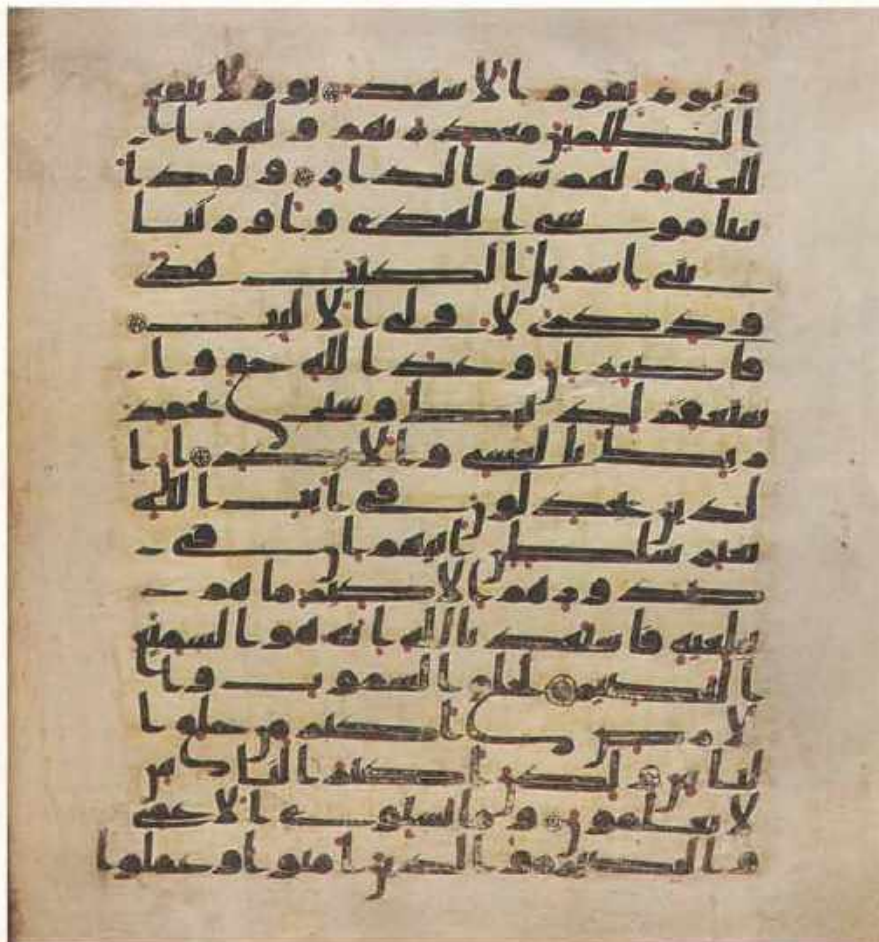 ويوم يقوم الاشهد يوم لا ينفع
الظلمين معذرتهم ولهم ا
للعنة ولهم سو الدار ولقد ا
تينا موسى الهدى واورثنا
بني اسريل الكتب هدى
وذكرى لاولي الالبب
فاصبر ان وعد الله حق وا
ستغفر لذنبك وسبح بحمد
ربك بالعشي والابكر ان ا
لذين يجدلون في ايت الله
بغير سلطن اتيهم ان في
صدورهم الا كبر ما هم
ببلغيه فاستعذ بالله انه هو السميع
البصير لخلق السموت وا
لارض اكبر من خلق ا
لناس ولكن اكثر الناس
لا يعلمون وما يستوي الاعمى
والبصير والذين امنوا وعملوا